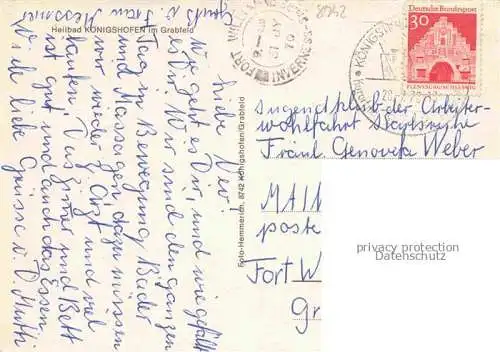 Gruß v. Frau Messmer
Heilbad KÖNIGSHOFEN im Grabfeld
Liebe Vevi!
Wie geht es Dir, und wie gefällt
es Dir. Wir sind den ganzen
Tag in Bewegung, Bäder
und Massagen, dazu müssen
wir wieder z. Arzt und viel
laufen. Das Zimmer und Bett
ist gut, und auch das Essen
Viele liebe Grüsse v. D. Mutti
Foto-Hemmerich, 8742 Königshofen/Grabfeld
8742
FORT WILLIAM
INVERNESS-SHIRE
1970
KÖNIGSHOFEN
Deutsche Bundespost
30
FLENSBURG/SCHLESWIG
Jugendklub der Arbeiter-
wohlfahrt
Fräul. Genovefa Weber
MAIN
poste
Fort W
Gr
privacy protection
Datenschutz